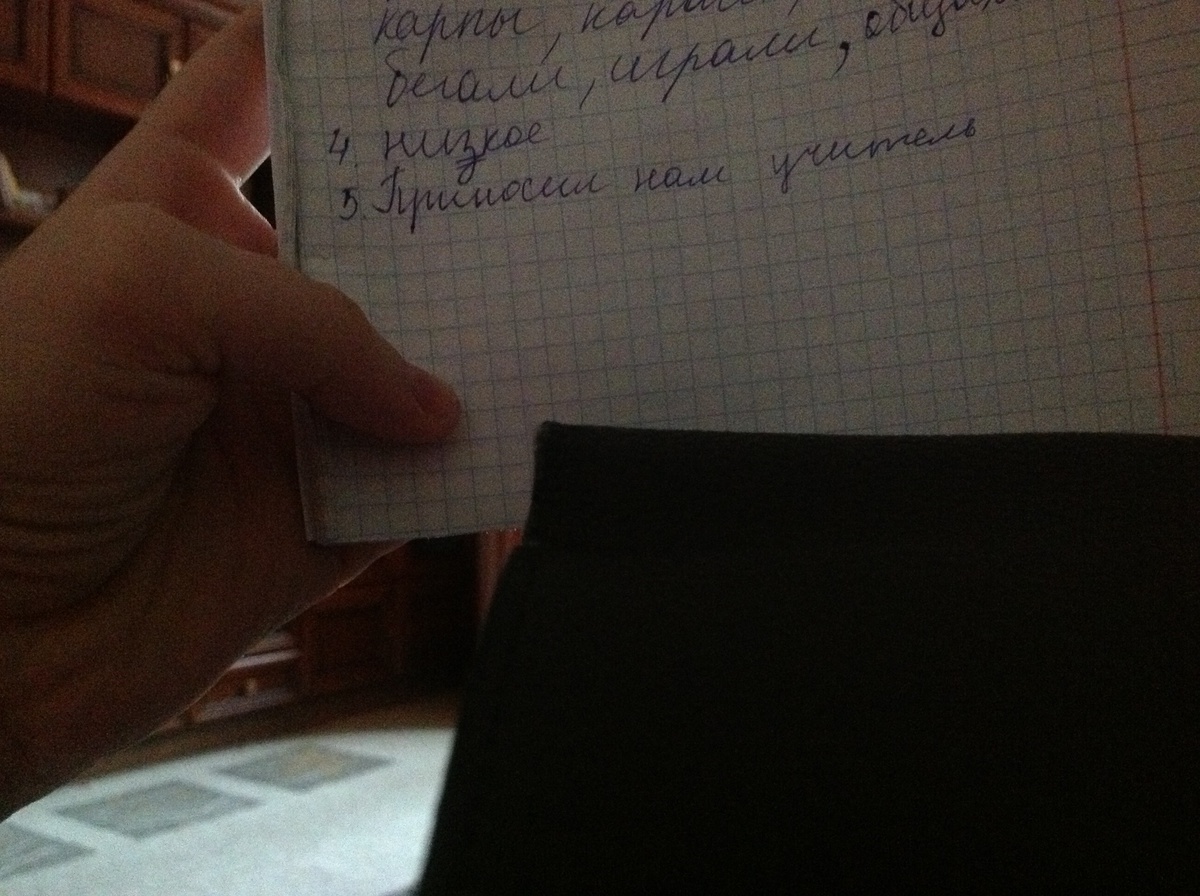 карпы, карас
бегали, играли, общал
4. низкое
5. Приносил нам учитель